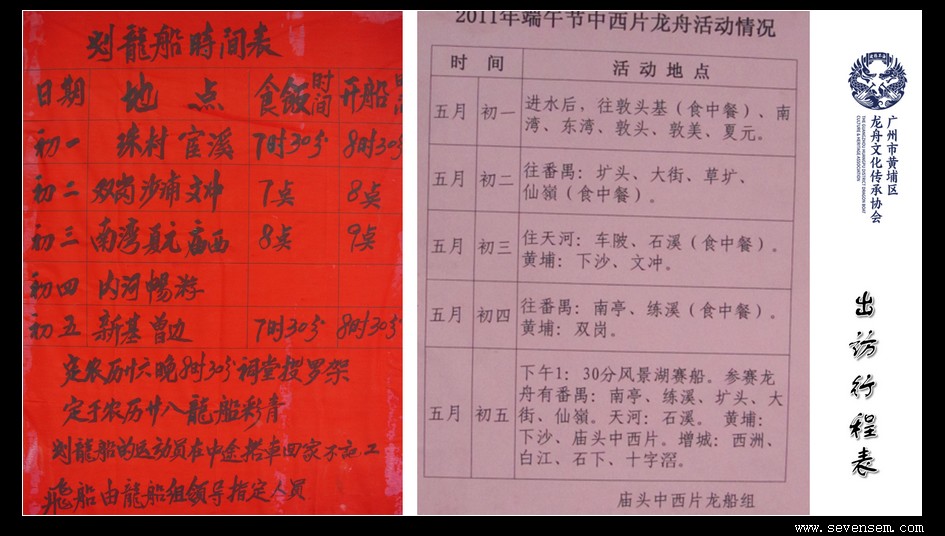 划龍船時間表
日期 地点 食飯时间 开船时间
初一 珠村 宦溪 7时30分 8时30分
初二 双岗沙浦文冲 7点 8点
初三 南湾夏元庙西 8点 9点
初四 内河暢游
初五 新基曾边 7时30分 8时30分
定农历廿六晚8时30分祠堂授罗架
定于农历廿八龍船彩青
划龍船的运动员在中途搭車回家不记工
飛船由龍船组领导指定人员
2011年端午节中西片龙舟活动情况
时间 活动地点
五月 初一 进水后，往敦头基（食中餐）、南
湾、东湾、敦头、敦美、夏元。
五月 初二 往番禺：圹头、大街、草圹、
仙嶺（食中餐）。
五月 初三 住天河：车陂、石溪（食中餐）。
黄埔：下沙、文冲。
五月 初四 往番禺：南亭、练溪（食中餐）。
黄埔：双岗。
五月 初五 下午1：30分风景湖赛船。参赛龙
舟有番禺：南亭、练溪、圹头、大
街、仙嶺。天河：石溪。 黄埔：
下沙、庙头中西片。增城：西洲、
白江、石下、十字滘。
庙头中西片龙船组
广州市黄埔区
龙舟文化传承协会
THE GUANGZHOU HUANGPU DISTRICT DRAGON BOAT
CULTURE & HERITAGE ASSOCIATION
出访行程表
www.sevensem.com